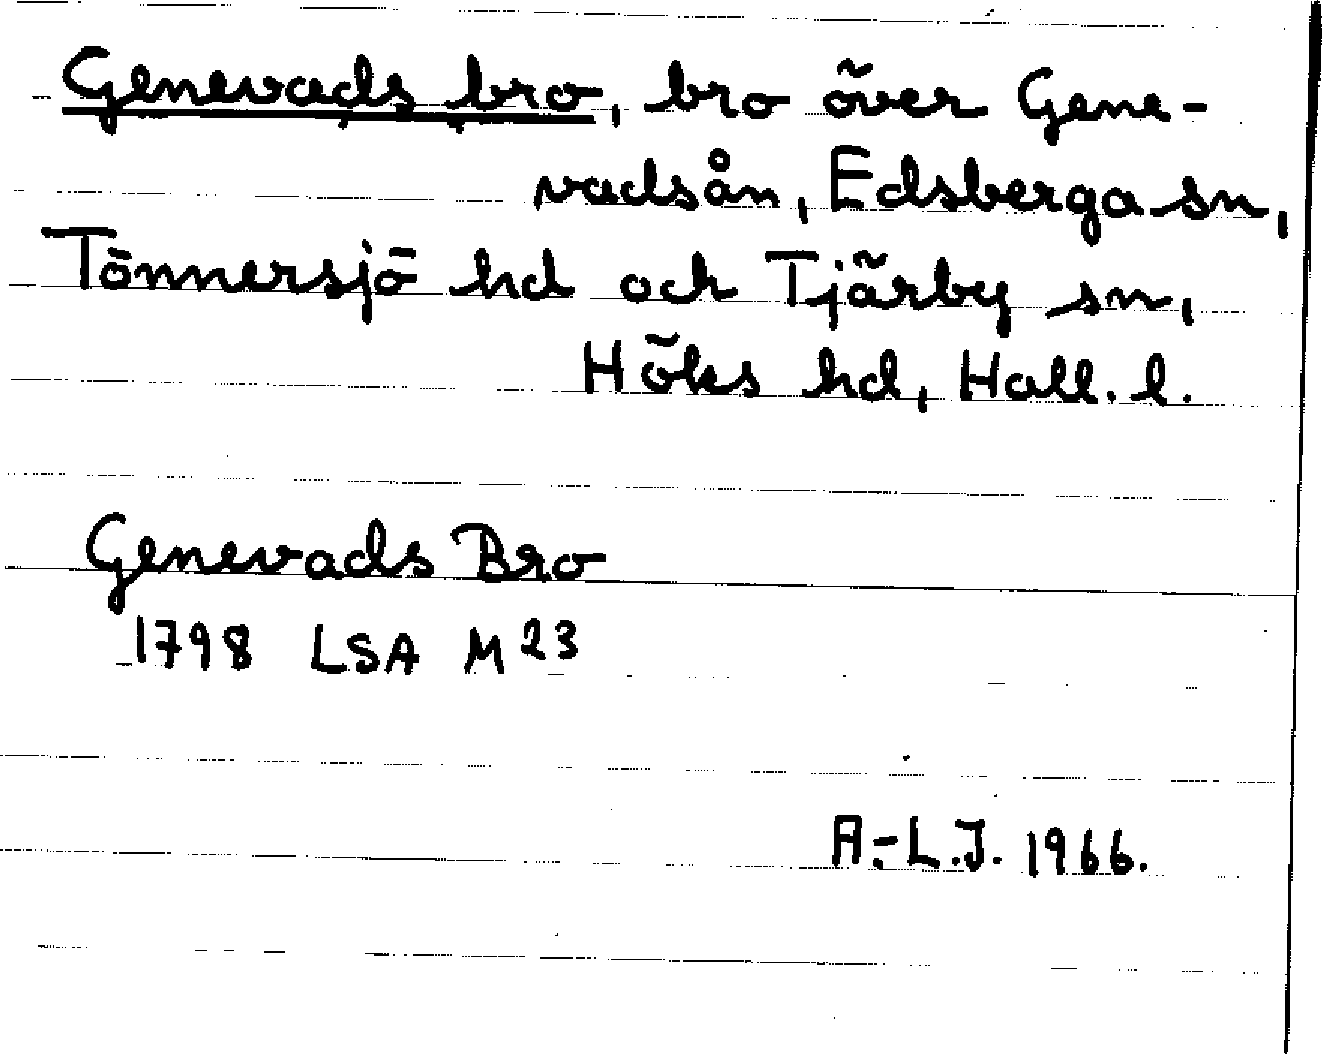 Genevads bro, bro över Gene-
vadsån, Edsberga sn,
Tönnersjö hd och Tjärby sn,
Höks hd, Hall. l.
Genevads Bro
1798 LSA M23
A.-L.J. 1966.